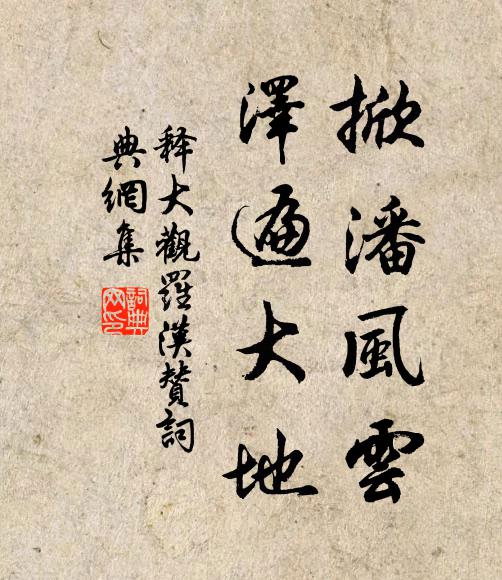 掀潘風雲
澤遍大地
释大觀羅漢赞詞
典網集
詞典
网印